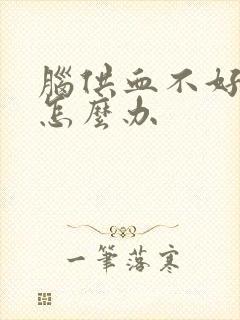 腦供血不好
怎麼办
一筆落寒